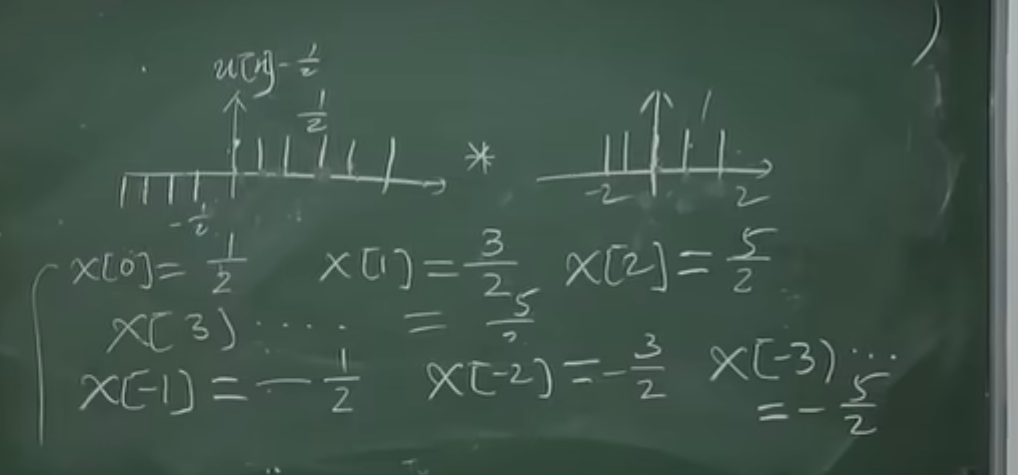 u[n]-1/2
1/2
*
1
-1/2
-2 2
x[0]=1/2 x[1]=3/2 x[2]=5/2
x[3)..... = 5/2
x[-1]=-1/2 x[-2)=-3/2 x[-3)...
=-5/2